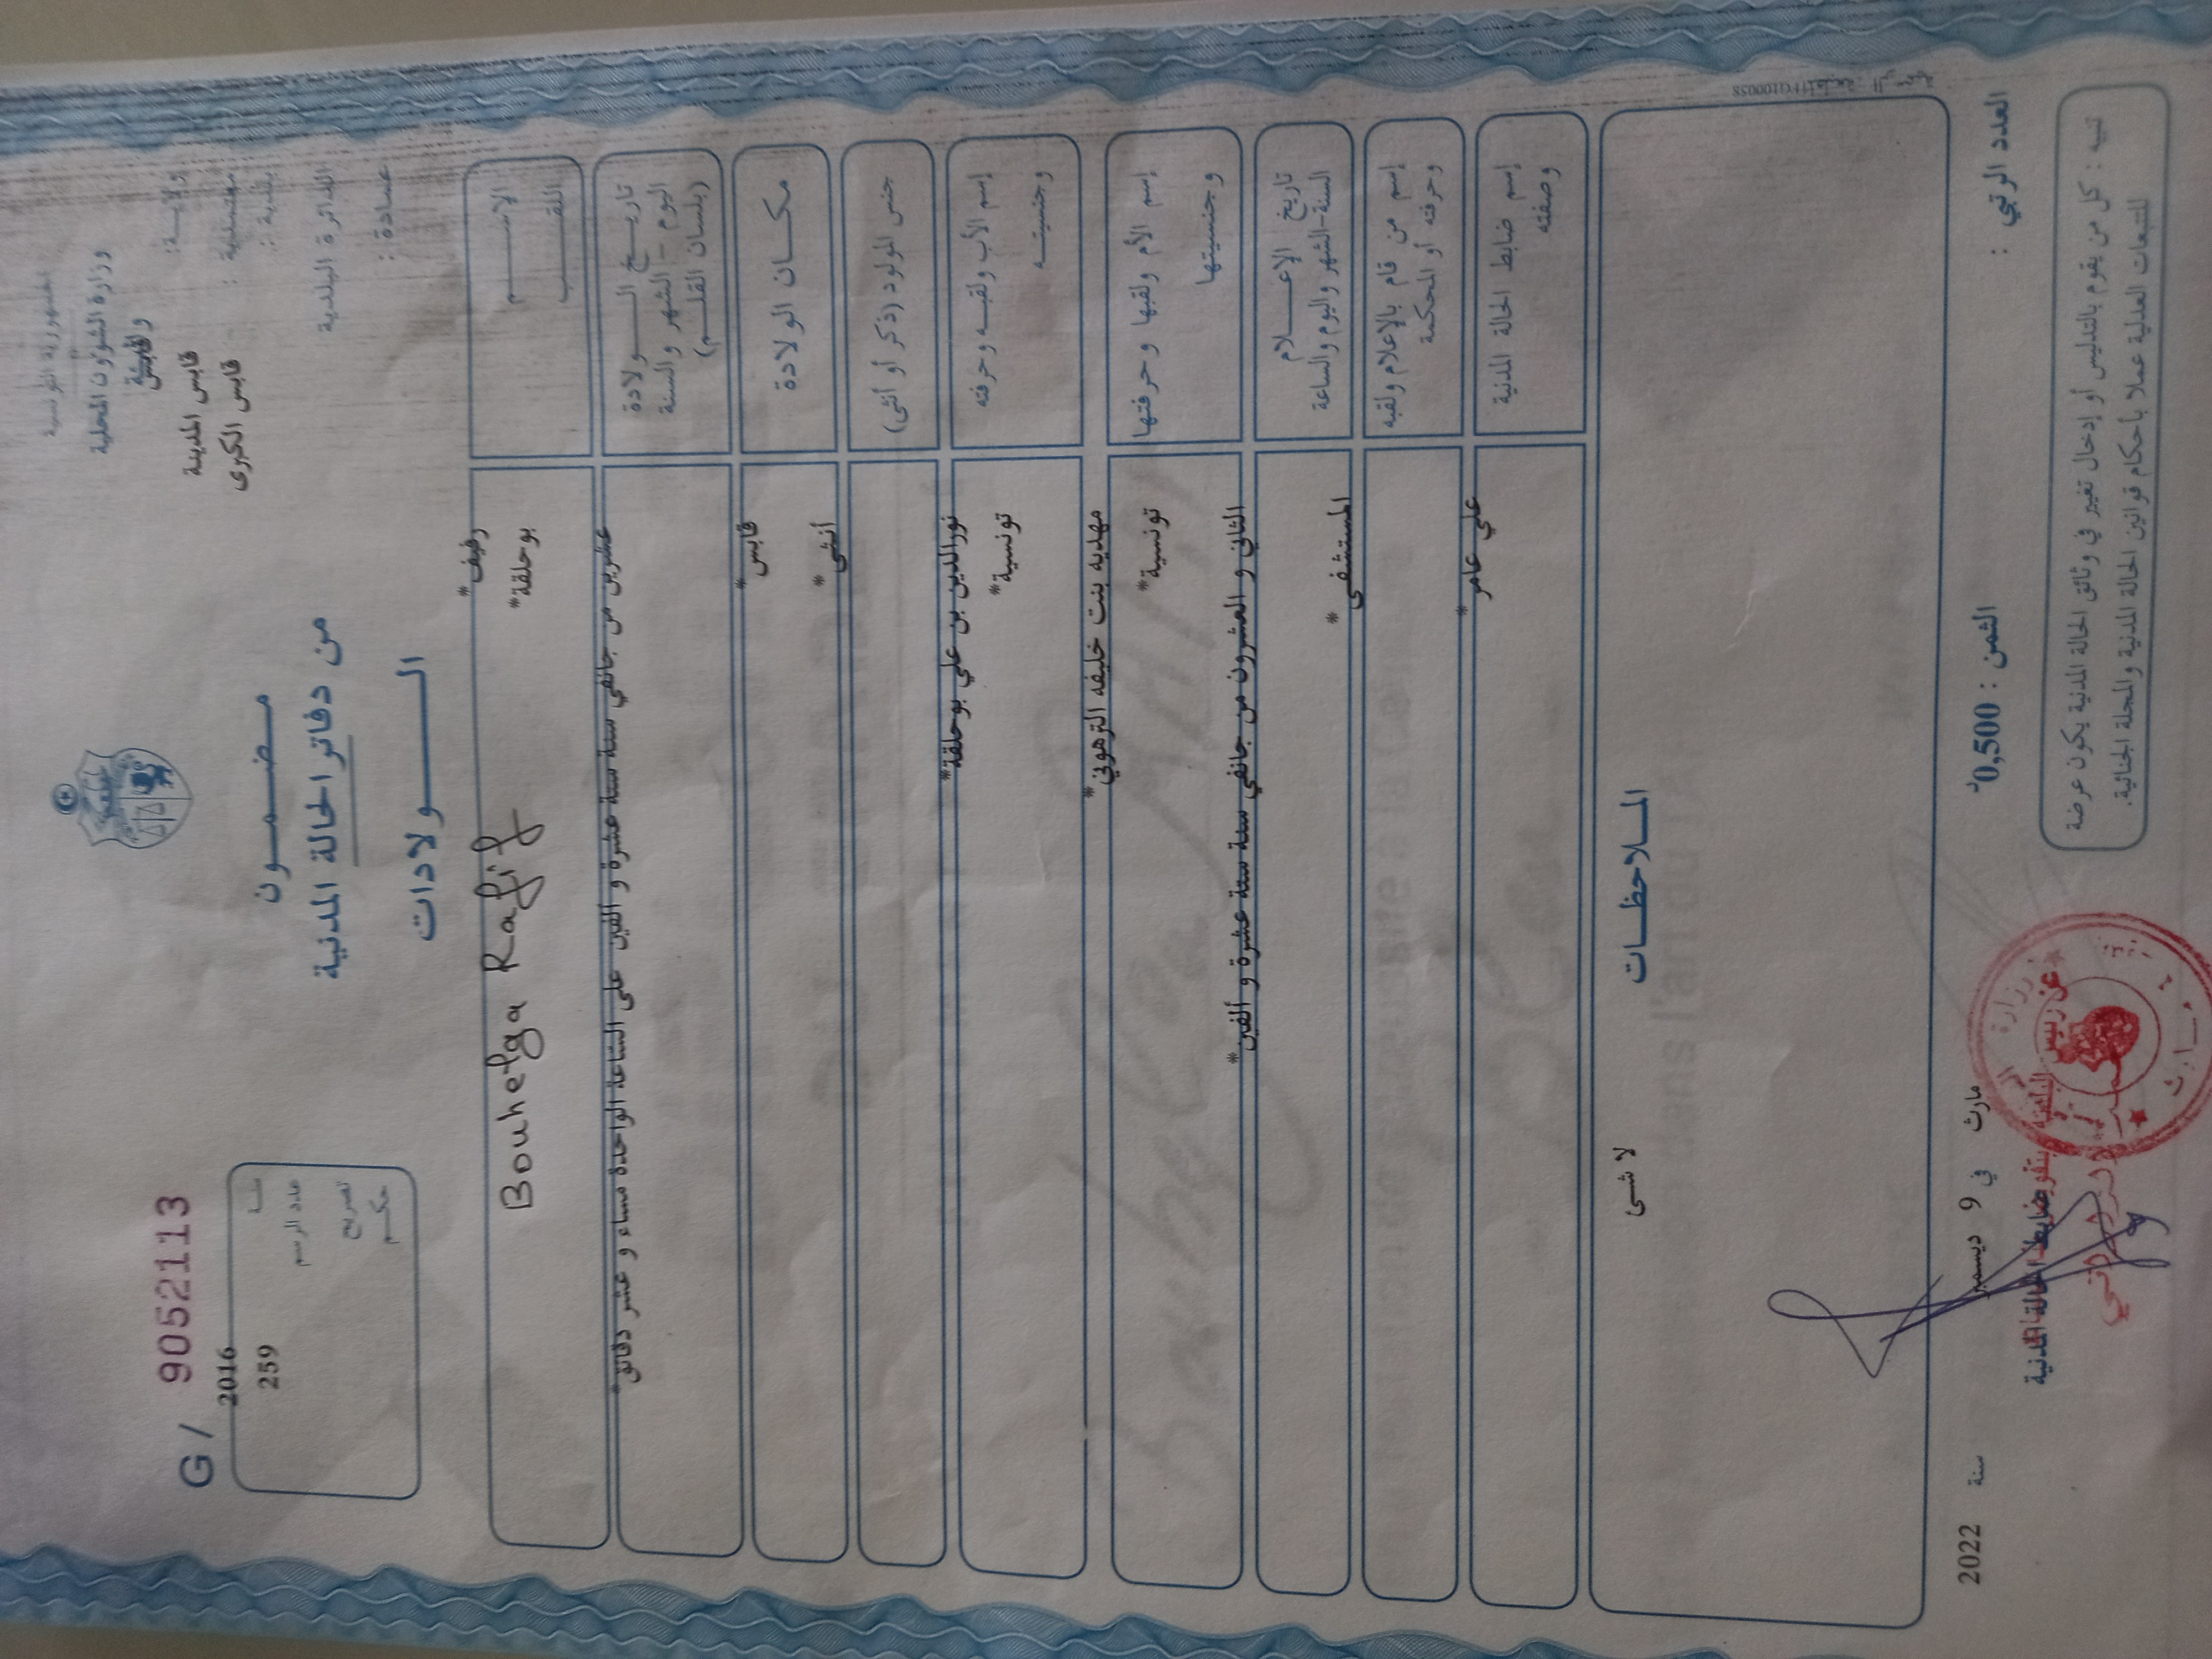 الجمهورية التونسية
وزارة الشؤون المحلية
والبيئة
ولاية : قابس
معتمدية : قابس المدينة
بلدية : قابس الكبرى
الدائرة البلدية
عمادة :
مضمون
من دفاتر الحالة المدنية
الولادات
G / 9052113
سنة 2016
عدد الرسم 259
تصريح
حكم
الإسم رفيف*
اللقب بوحلقة*
Bouhelga Rafif
تاريخ الولادة
اليوم - الشهر والسنة
(بلسان القلم)
عشرين من جانفي سنة ستة عشرة و الفين على الساعة الواحدة مساء و عشر دقائق*
مكان الولادة قابس*
جنس المولود (ذكر أو أنثى) أنثى*
إسم الأب ولقبه وحرفته نورالدين بن علي بوحلقة*
وجنسيته تونسية*
إسم الأم ولقبها وحرفتها مهديه بنت خليفه الترهوني*
وجنسيتها تونسية*
تاريخ الإعلام
السنة-الشهر واليوم والساعة
الثاني و العشرون من جانفي سنة ستة عشرة و ألفين*
إسم من قام بالإعلام ولقبه
وحرفته أو المحكمة
المستشفى*
إسم ضابط الحالة المدنية
وصفته
علي عامر*
الملاحظات
لا شئ
المطبعة الرسمية
العدد الرتبي :
الثمن : 0,500د
مارث في 9 ديسمبر سنة 2022
ضابط الحالة المدنية
تنبيه : كل من يقوم بالتدليس أو إدخال تغيير في وثائق الحالة المدنية يكون عرضة
للتتبعات العدلية عملا بأحكام قوانين الحالة المدنية والمجلة الجنائية.